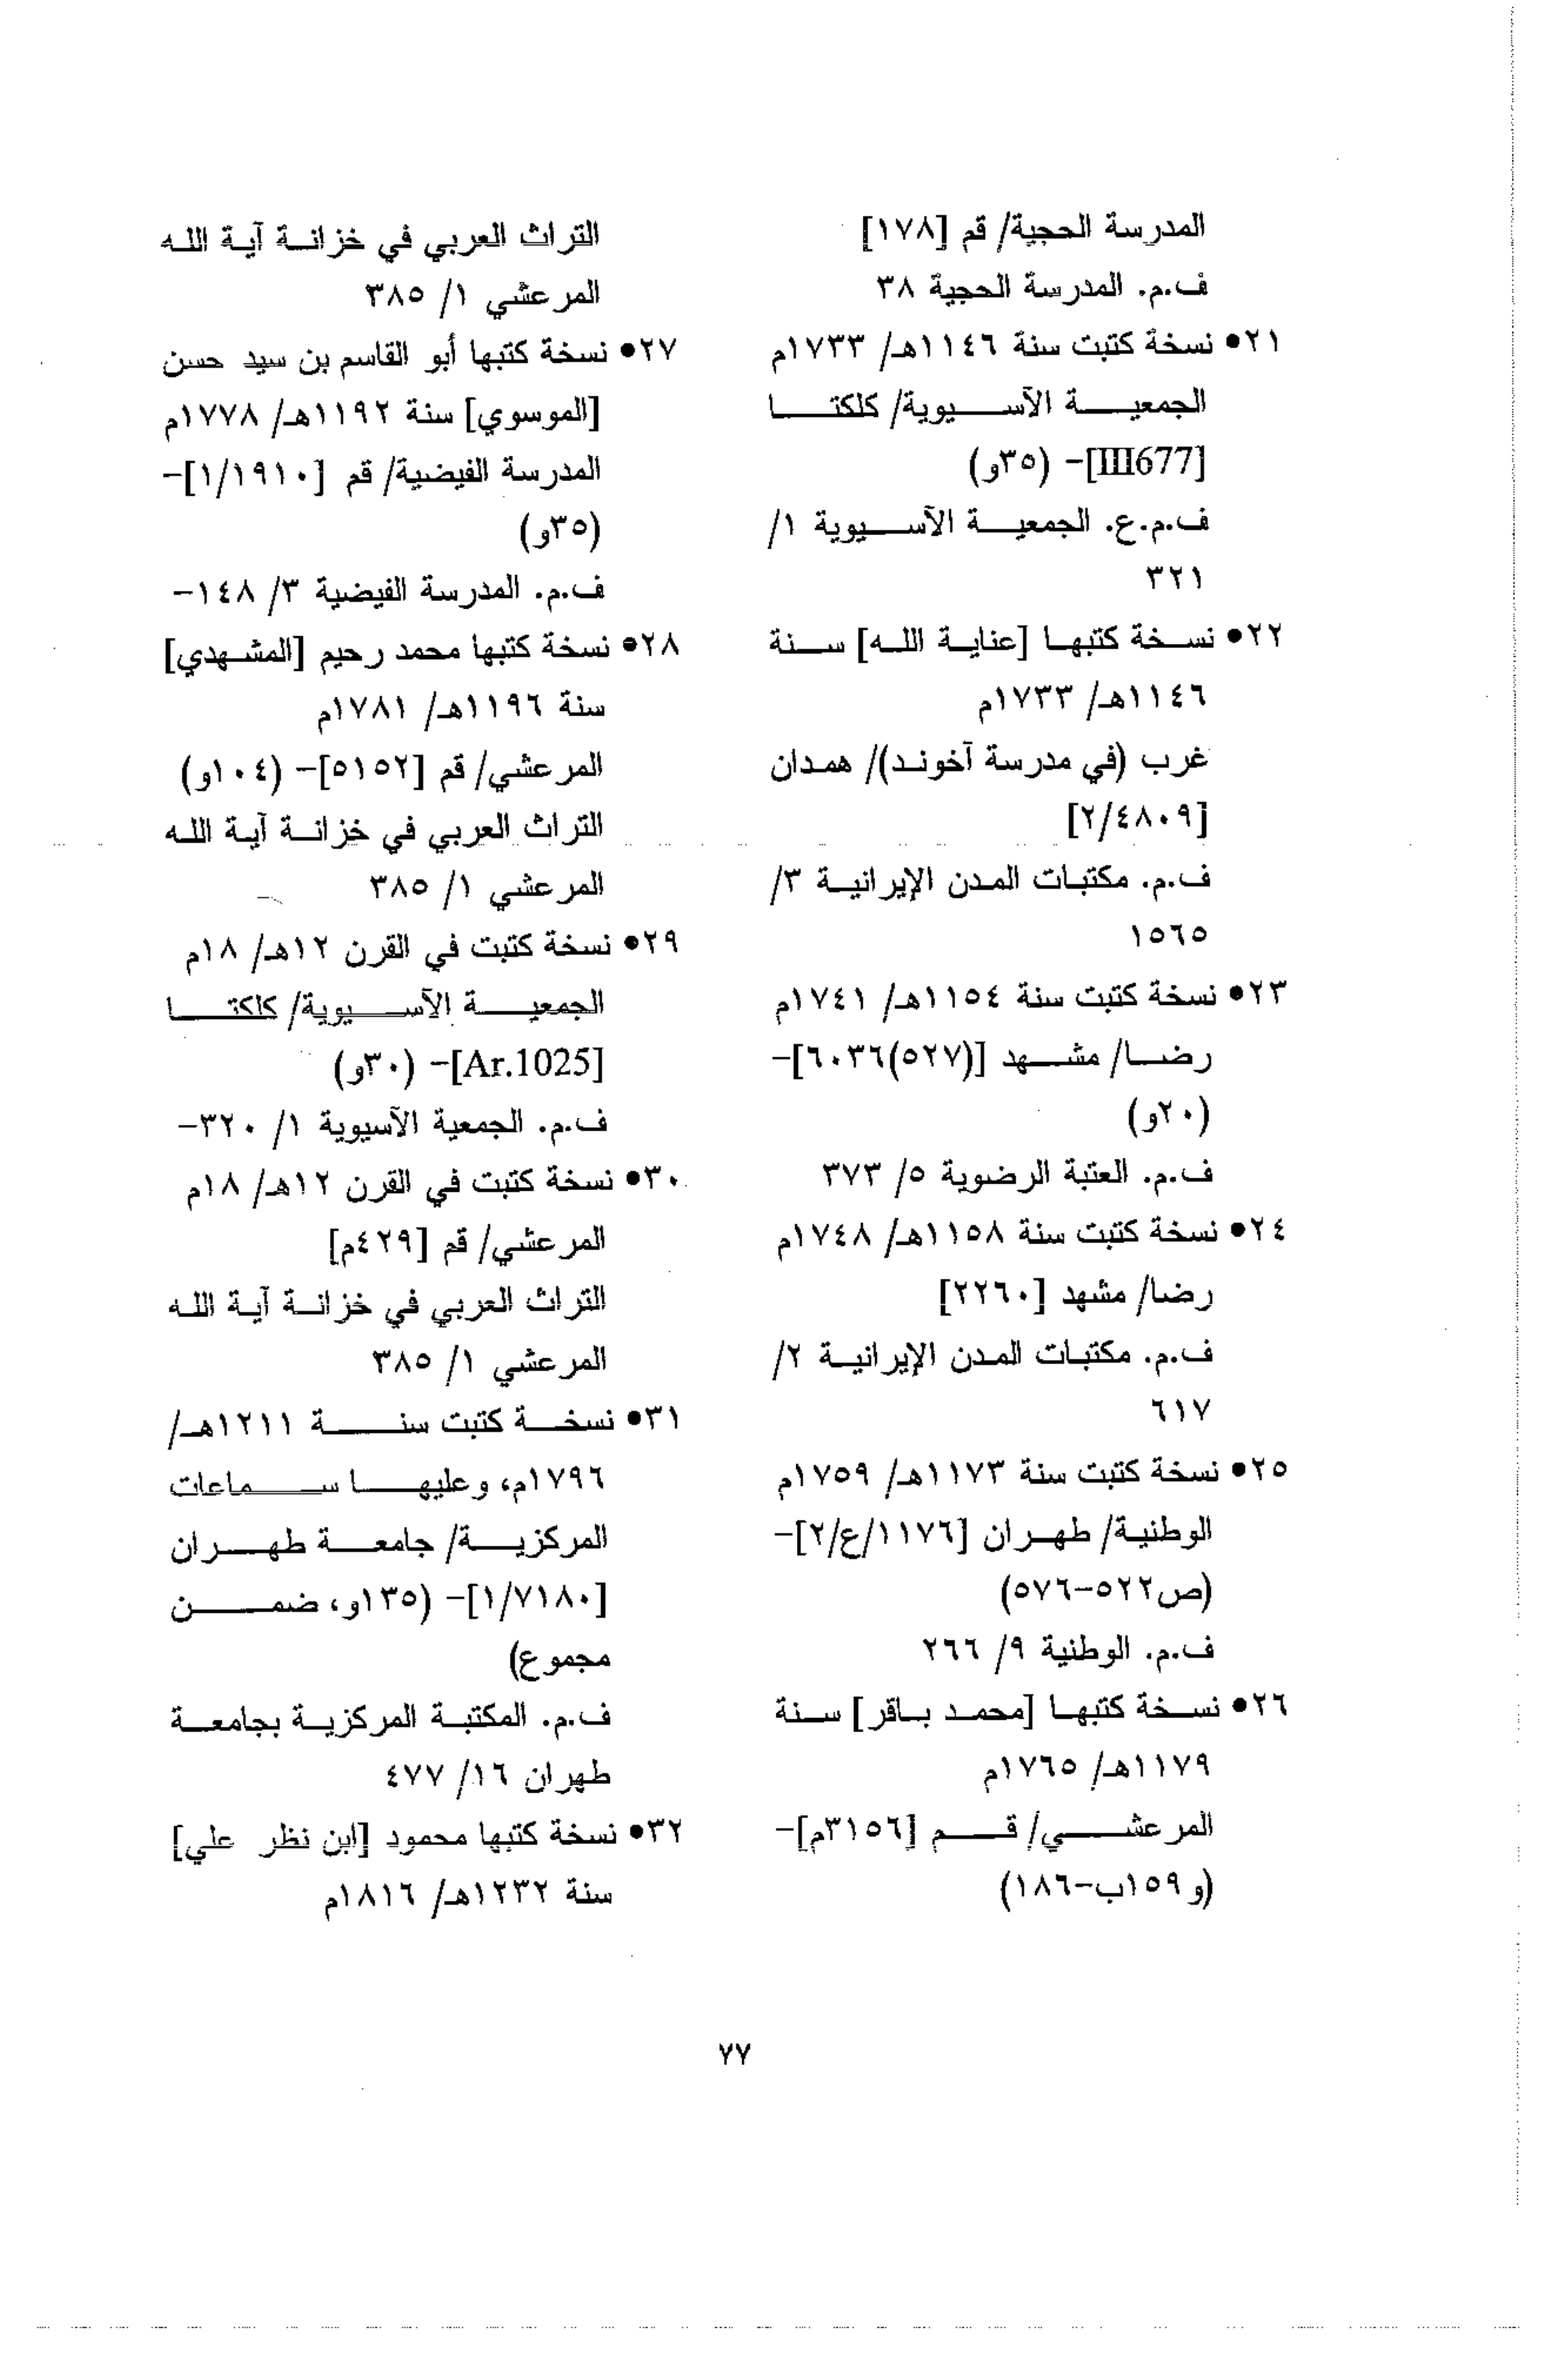 المدرسة الحجية/ قم [١٧٨]
ف.م. المدرسة الحجية ٣٨
٢١• نسخة كتبت سنة ١١٤٦هـ/ ١٧٣٣م
الجمعية الآسيوية/ كلكتا
[III677]- (٣٥و)
ف.م.ع. الجمعية الآسيوية ١/
٣٢١
٢٢• نسخة كتبها [عناية الله] سنة
١١٤٦هـ/ ١٧٣٣م
غرب (في مدرسة آخوند)/ همدان
[٢/٤٨٠٩]
ف.م. مكتبات المدن الإيرانية ٣/
١٥٦٥
٢٣• نسخة كتبت سنة ١١٥٤هـ/ ١٧٤١م
رضا/ مشهد [(٥٢٧)٦٠٣٦]-
(٢٠و)
ف.م. العتبة الرضوية ٥/ ٣٧٣
٢٤• نسخة كتبت سنة ١١٥٨هـ/ ١٧٤٨م
رضا/ مشهد [٢٢٦٠]
ف.م. مكتبات المدن الإيرانية ٢/
٦١٧
٢٥• نسخة كتبت سنة ١١٧٣هـ/ ١٧٥٩م
الوطنية/ طهران [١١٧٦/ع/٢]-
(ص٥٢٢-٥٧٦)
ف.م. الوطنية ٩/ ٢٦٦
٢٦• نسخة كتبها [محمد باقر] سنة
١١٧٩هـ/ ١٧٦٥م
المرعشي/ قم [٣١٥٦م]-
(و١٥٩ب-١٨٦)
التراث العربي في خزانة آية الله
المرعشي ١/ ٣٨٥
٢٧• نسخة كتبها أبو القاسم بن سيد حسن
[الموسوي] سنة ١١٩٢هـ/ ١٧٧٨م
المدرسة الفيضية/ قم [١/١٩١٠]-
(٣٥و)
ف.م. المدرسة الفيضية ٣/ ١٤٨-
٢٨• نسخة كتبها محمد رحيم [المشهدي]
سنة ١١٩٦هـ/ ١٧٨١م
المرعشي/ قم [٥١٥٢]- (١٠٤و)
التراث العربي في خزانة آية الله
المرعشي ١/ ٣٨٥
٢٩• نسخة كتبت في القرن ١٢هـ/ ١٨م
الجمعية الآسيوية/ كلكتا
[Ar.1025]- (٣٠و)
ف.م. الجمعية الآسيوية ١/ ٣٢٠-
٣٠• نسخة كتبت في القرن ١٢هـ/ ١٨م
المرعشي/ قم [٤٢٩م]
التراث العربي في خزانة آية الله
المرعشي ١/ ٣٨٥
٣١• نسخة كتبت سنة ١٢١١هـ/
١٧٩٦م، وعليها سماعات
المركزية/ جامعة طهران
[١/٧١٨٠]- (١٣٥و، ضمن
مجموع)
ف.م. المكتبة المركزية بجامعة
طهران ١٦/ ٤٧٧
٣٢• نسخة كتبها محمود [ابن نظر علي]
سنة ١٢٣٢هـ/ ١٨١٦م
٧٧